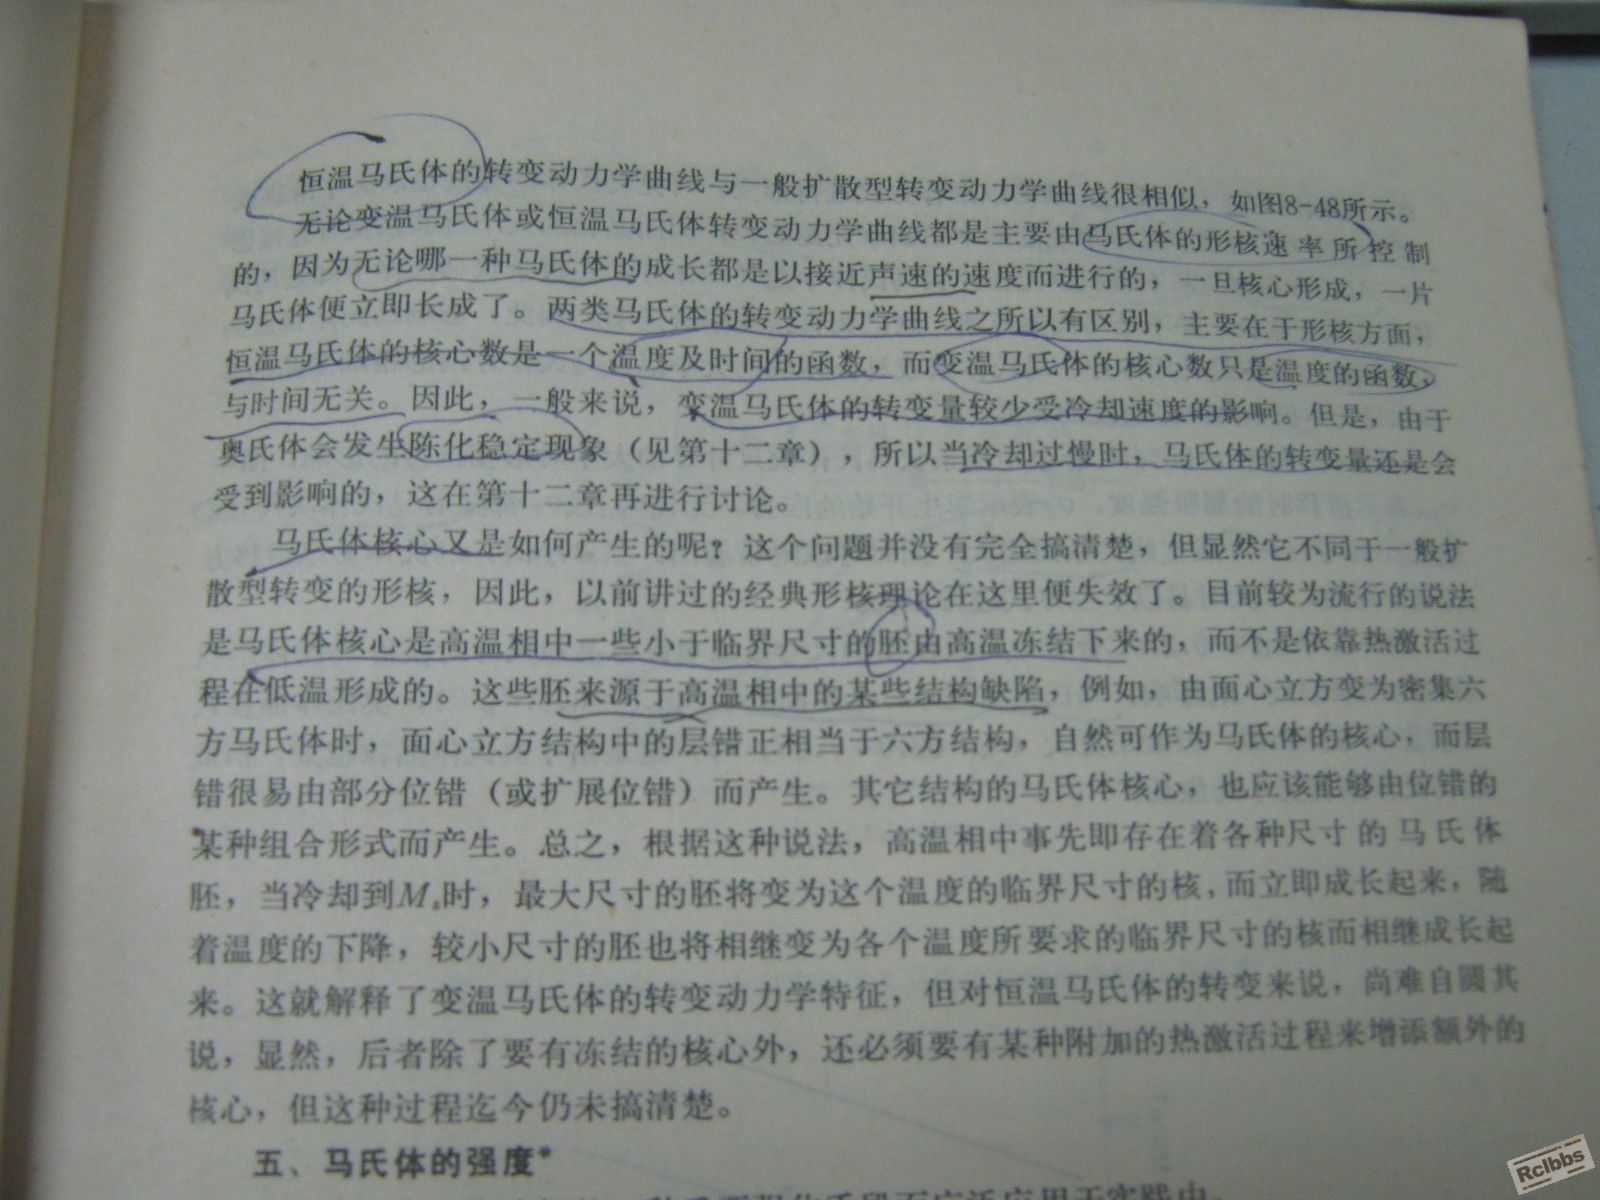 恒温马氏体的转变动力学曲线与一般扩散型转变动力学曲线很相似，如图8-48所示。
无论变温马氏体或恒温马氏体转变动力学曲线都是主要由马氏体的形核速率所控制
的，因为无论哪一种马氏体的成长都是以接近声速的速度而进行的，一旦核心形成，一片
马氏体便立即长成了。两类马氏体的转变动力学曲线之所以有区别，主要在于形核方面，
恒温马氏体的核心数是一个温度及时间的函数，而变温马氏体的核心数只是温度的函数，
与时间无关。因此，一般来说，变温马氏体的转变量较少受冷却速度的影响。但是，由于
奥氏体会发生陈化稳定现象（见第十二章），所以当冷却过慢时，马氏体的转变量还是会
受到影响的，这在第十二章再进行讨论。
马氏体核心又是如何产生的呢？这个问题并没有完全搞清楚，但显然它不同于一般扩
散型转变的形核，因此，以前讲过的经典形核理论在这里便失效了。目前较为流行的说法
是马氏体核心是高温相中一些小于临界尺寸的胚由高温冻结下来的，而不是依靠热激活过
程在低温形成的。这些胚来源于高温相中的某些结构缺陷，例如，由面心立方变为密集六
方马氏体时，面心立方结构中的层错正相当于六方结构，自然可作为马氏体的核心，而层
错很易由部分位错（或扩展位错）而产生。其它结构的马氏体核心，也应该能够由位错的
某种组合形式而产生。总之，根据这种说法，高温相中事先即存在着各种尺寸的马氏体
胚，当冷却到Mₛ时，最大尺寸的胚将变为这个温度的临界尺寸的核，而立即成长起来，随
着温度的下降，较小尺寸的胚也将相继变为各个温度所要求的临界尺寸的核而相继成长起
来。这就解释了变温马氏体的转变动力学特征，但对恒温马氏体的转变来说，尚难自圆其
说，显然，后者除了要有冻结的核心外，还必须要有某种附加的热激活过程来增添额外的
核心，但这种过程迄今仍未搞清楚。
五、马氏体的强度*
Rclbbs